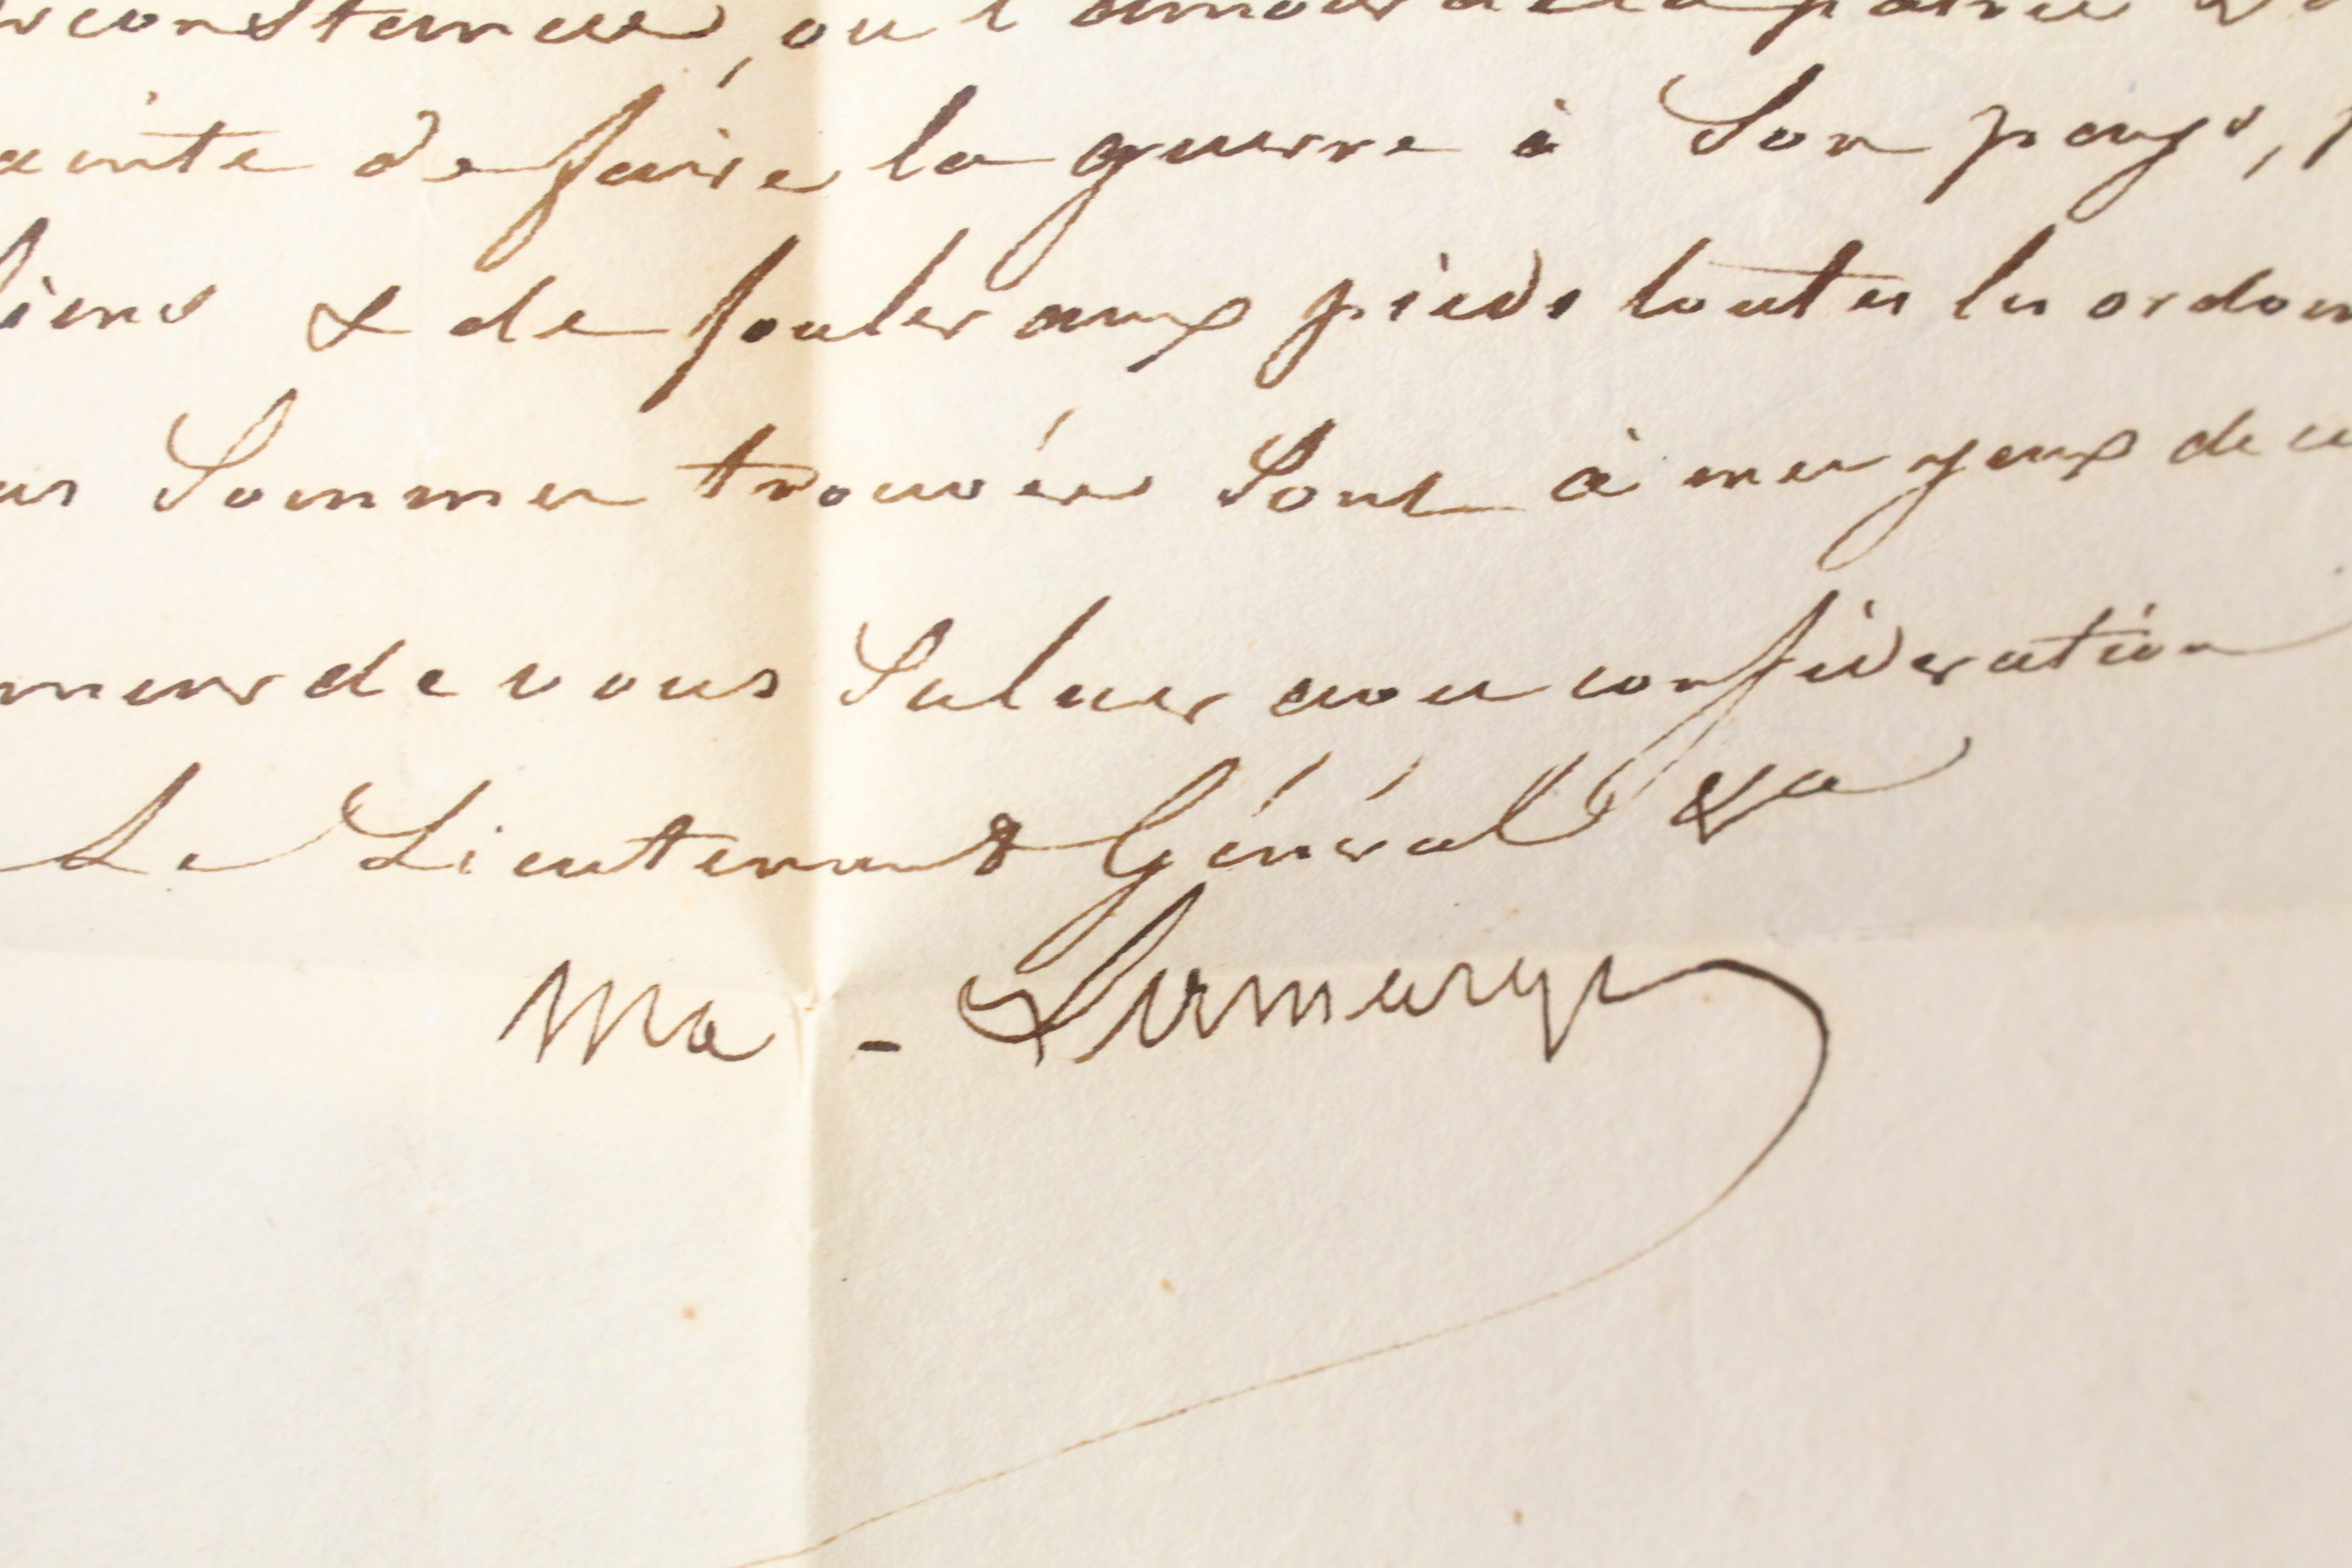 rconstances, ou l'amour de la patrie
ainte de faire la guerre à Son pays,
liens & de fouler aux pieds toutes les ordon
us Sommes trouvés Sont à mes yeux de
neur de vous Saluer avec consideration
Le Lieutenant Général &a
Ma - Lamarque